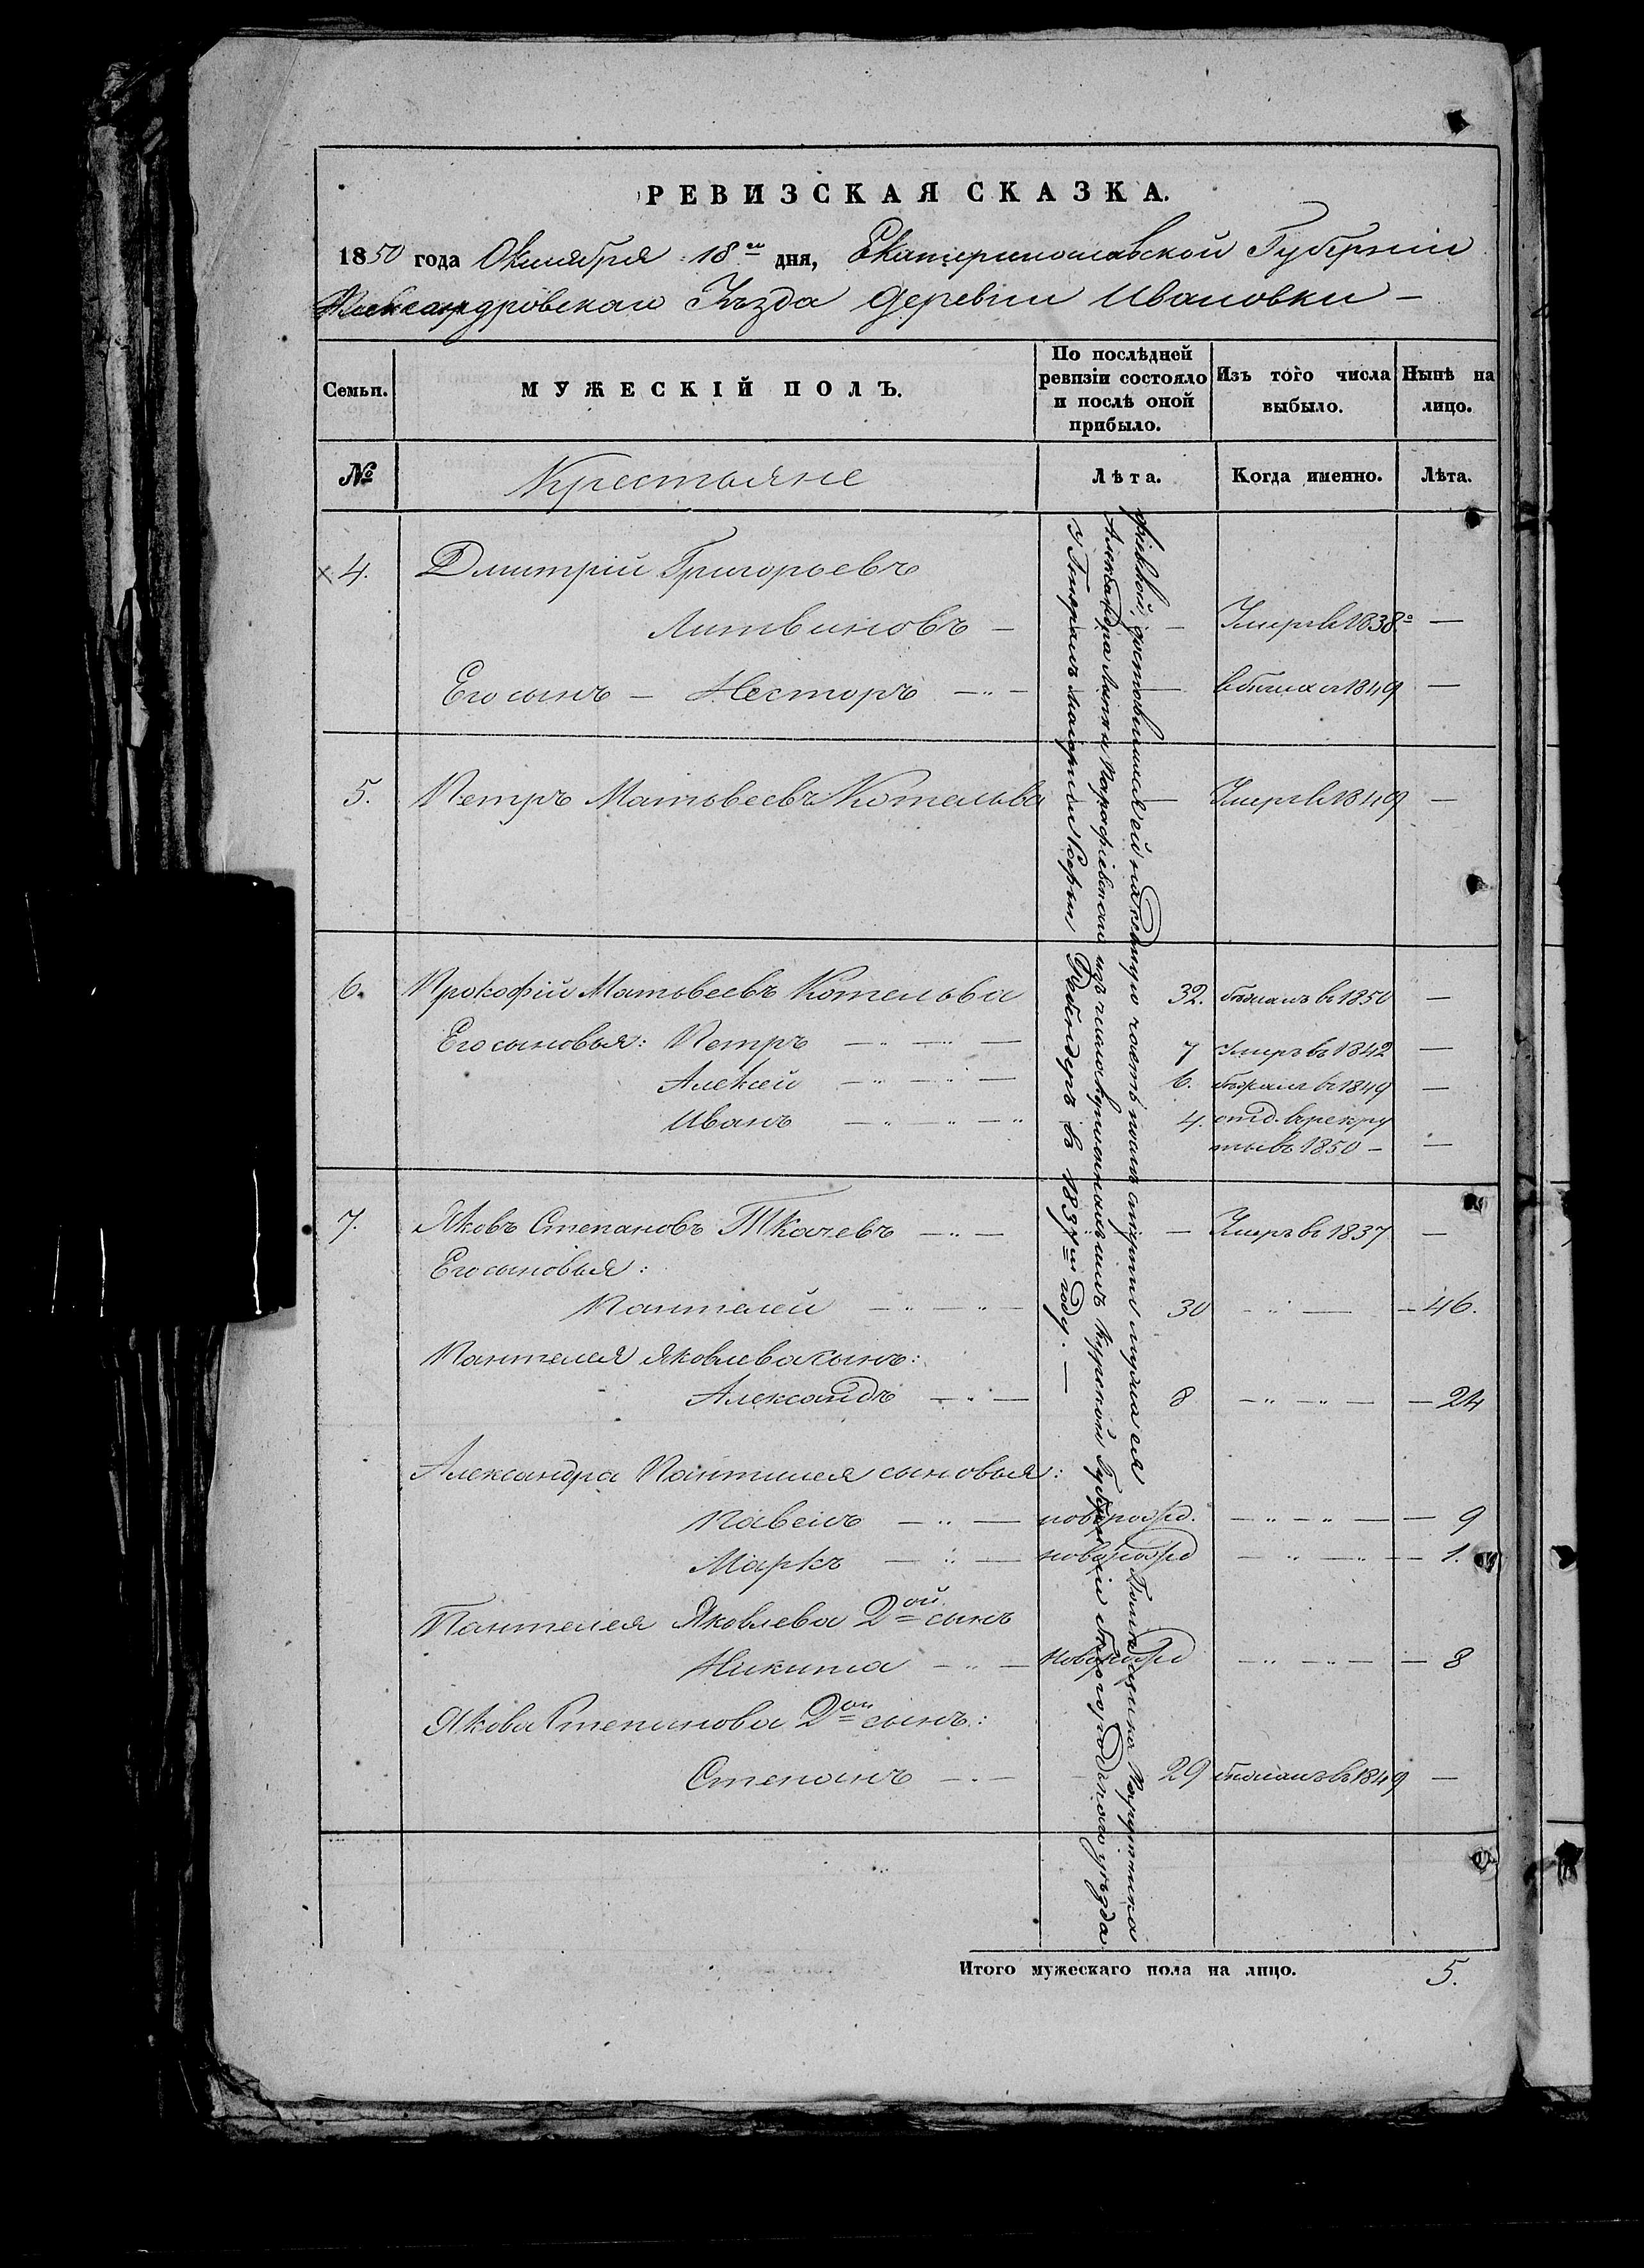 РЕВИЗСКАЯ СКАЗКА.
1850 года Октября 18го дня, Екатеринославской Губерніи
Александровскаго Уѣзда деревни Ивановки —
Семьи.
МУЖЕСКІЙ ПОЛЪ.
По послѣдней ревизіи состояло и послѣ оной прибыло.
Изъ того числа выбыло.
Нынѣ на лицо.
№
Крестьяне
Лѣта.
Когда именно.
Лѣта.
4. Дмитрій Григорьевъ
Литвиновъ — — Умеръ въ 1838го —
Его сынъ — Несторъ — — въ бѣгахъ съ 1849 —
5. Петръ Матвеевъ Котельва — Умеръ въ 1849 —
6. Прокофій Матвеевъ Котельва 32. бѣжалъ въ 1850 —
Его сыновья: Петръ — 7 Умеръ въ 1842 —
Алексей — 6. бѣжалъ въ 1849 —
Иванъ — 4. отд. въ рекру
ты въ 1850 — —
7. Яковъ Степановъ Ткачевъ — — Умеръ въ 1837 —
Его сыновья:
Пантелей — 30 — — 46.
Пантелея Яковлева сынъ:
Александръ — 8 — — 24
Александра Пантелея сыновья:
Павелъ — новорожд. — — 9
Маркъ — новорожд — — 1.
Пантелея Яковлева 2ой сынъ
Никита — новорожд — — 8
Якова Степанова 2ой сынъ:
Степанъ — 29 бѣжалъ въ 1849 —
доставшимися ей на седьмую часть после смерти мужа ея Помещика Поручика
Александра из числа купленнымъ имъ Курской Губерніи Бѣлогородскаго уѣзда
у Генералъ маіорши Софьи Ребиндеръ въ 1837м году. —
Итого мужескаго пола на лицо. 5.